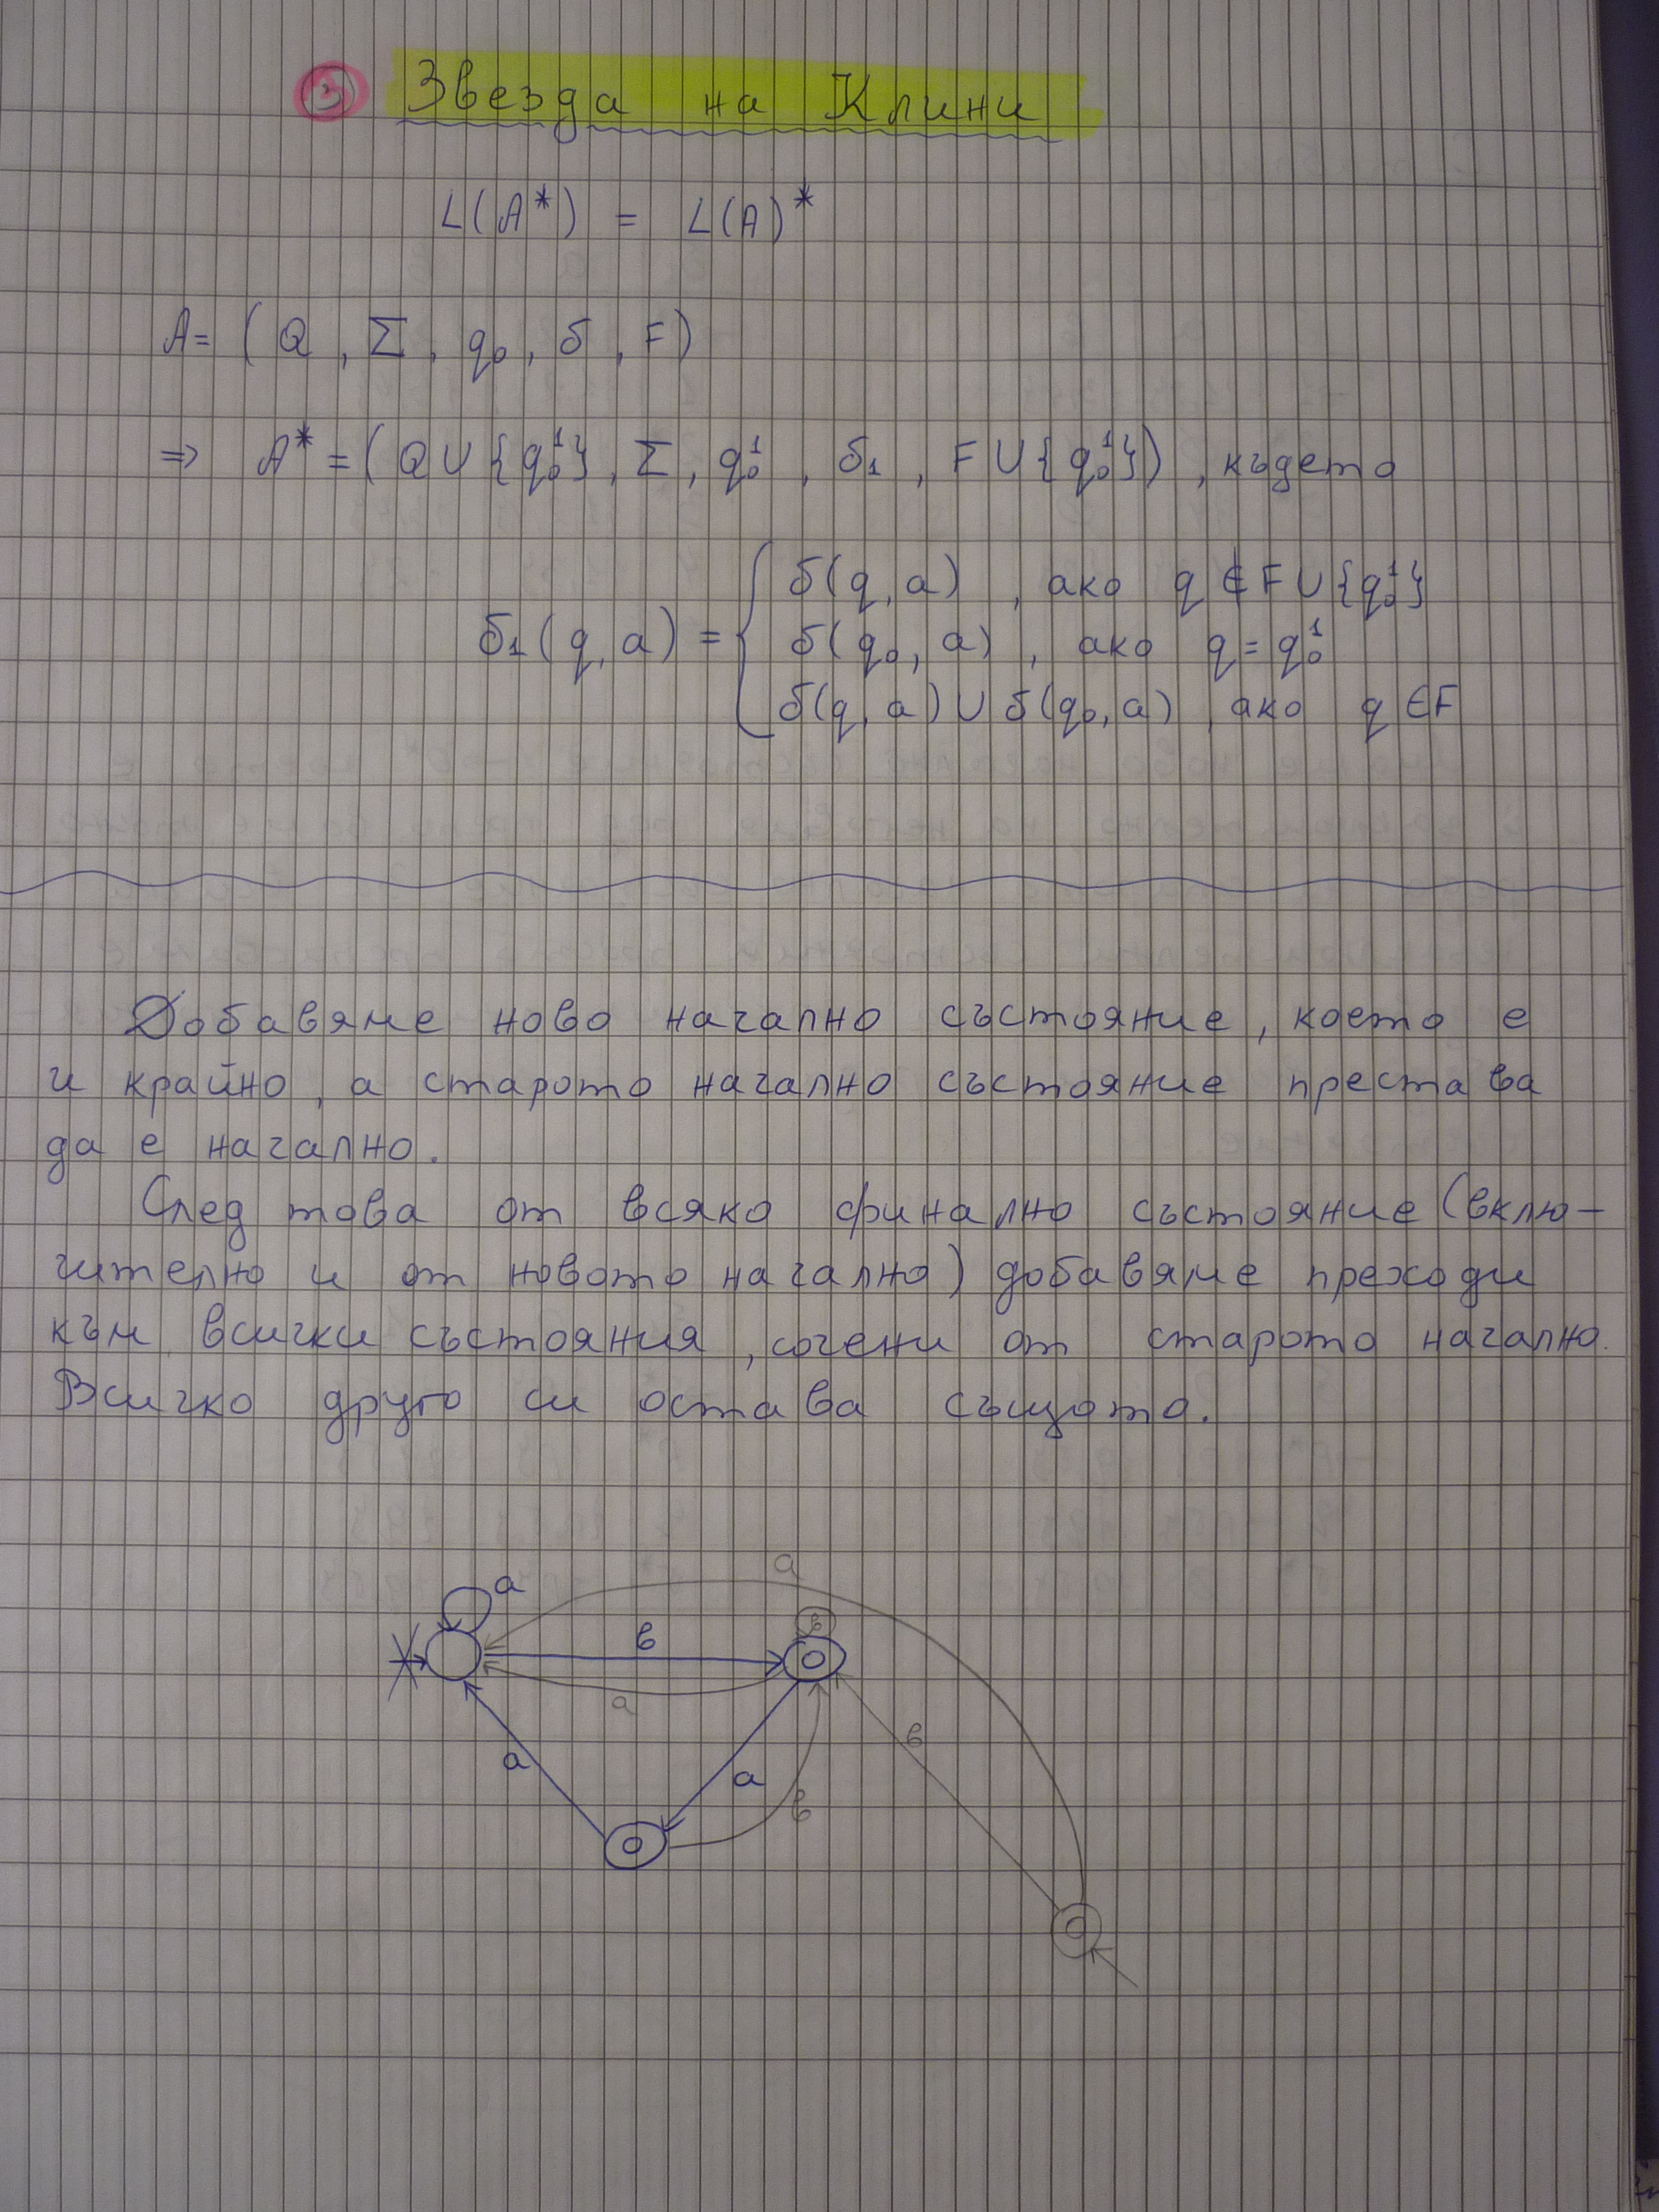 ③ Звезда на Клини
L(A*) = L(A)*
A = (Q, Σ, q₀, δ, F)
⇒ A* = (Q ∪ {q₀¹}, Σ, q₀¹, δ₁, F ∪ {q₀¹}), където
δ(q, a), ако q ∉ F ∪ {q₀¹}
δ₁(q, a) = { δ(q₀, a), ако q = q₀¹
δ(q, a) ∪ δ(q₀, a), ако q ∈ F
Добавяме ново начално състояние, което е
и крайно, а старото начално състояние престава
да е начално.
След това от всяко финално състояние (вклю-
чително и от новото начално) добавяме преходи
към всички състояния, сочени от старото начално.
Всичко друго си остава същото.
a
a
в
в
a
в
a
a
в